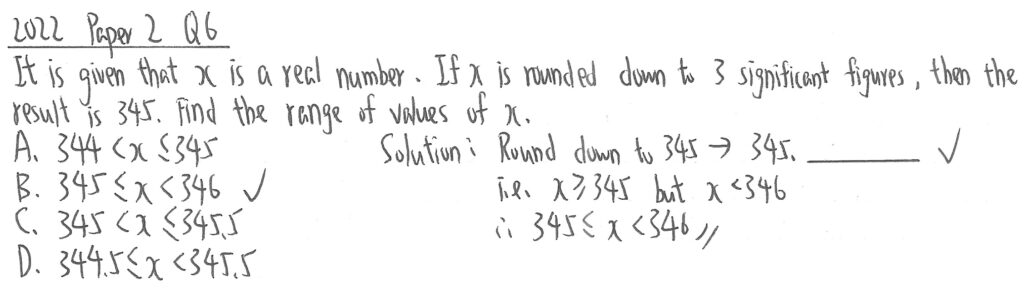 2022 Paper 2 Q6
It is given that x is a real number. If x is rounded down to 3 significant figures, then the
result is 345. Find the range of values of x.
A. 344 < x ≤ 345
B. 345 ≤ x < 346 ✓
C. 345 < x ≤ 345.5
D. 344.5 ≤ x < 345.5
Solution: Round down to 345 → 345. ________ ✓
i.e. x ≥ 345 but x < 346
∴ 345 ≤ x < 346 //